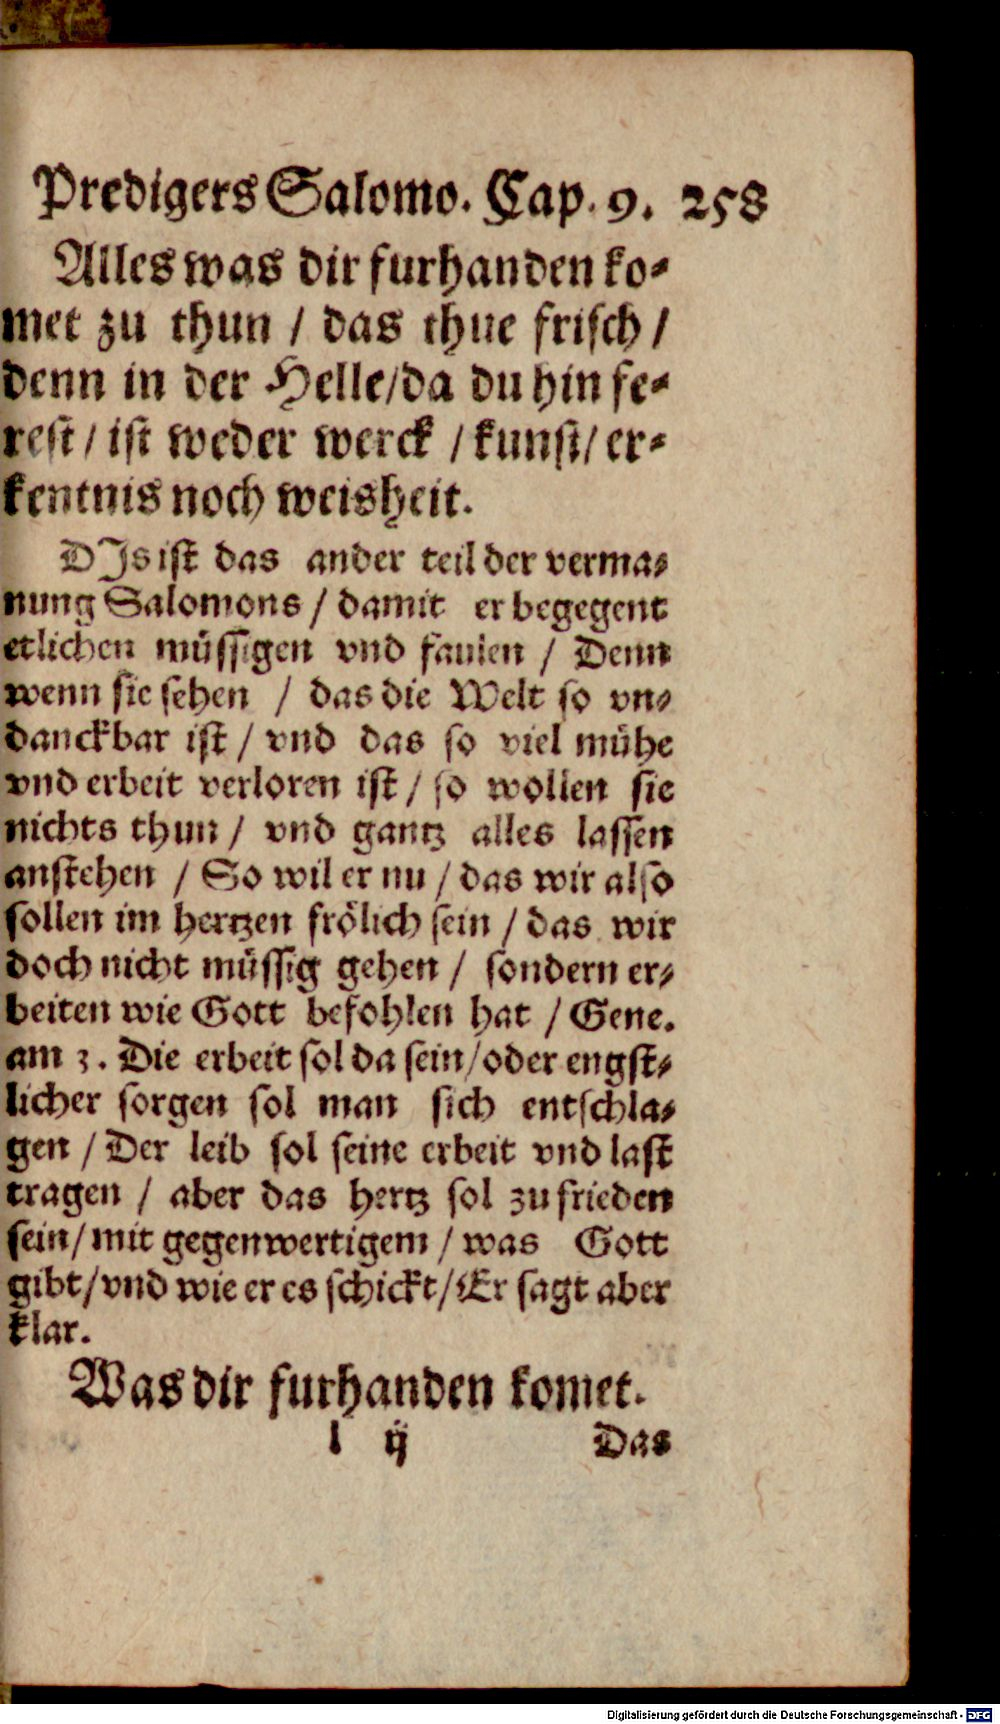 Predigers Salomo. Cap. 9. 258
Alles was dir furhanden ko-
met zu thun / das thue frisch /
denn in der Helle/da du hin fe-
rest / ist weder werck / kunst/ er-
kentnis noch weisheit.
DJs ist das ander teil der verma-
nung Salomons / damit er begegent
etlichen müssigen vnd faulen / Denn
wenn sie sehen / das die Welt so vn-
danckbar ist / vnd das so viel mühe
vnd erbeit verloren ist / so wollen sie
nichts thun / vnd gantz alles lassen
anstehen / So wil er nu / das wir also
sollen im hertzen frölich sein / das wir
doch nicht müssig gehen / sondern er-
beiten wie Gott befohlen hat / Gene.
am 3. Die erbeit sol da sein/oder engst-
licher sorgen sol man sich entschla-
gen / Der leib sol seine erbeit vnd last
tragen / aber das hertz sol zu frieden
sein/ mit gegenwertigem / was Gott
gibt/vnd wie er es schickt/Er sagt aber
klar.
Was dir furhanden komet.
l ij Das
Digitalisierung gefördert durch die Deutsche Forschungsgemeinschaft - DFG